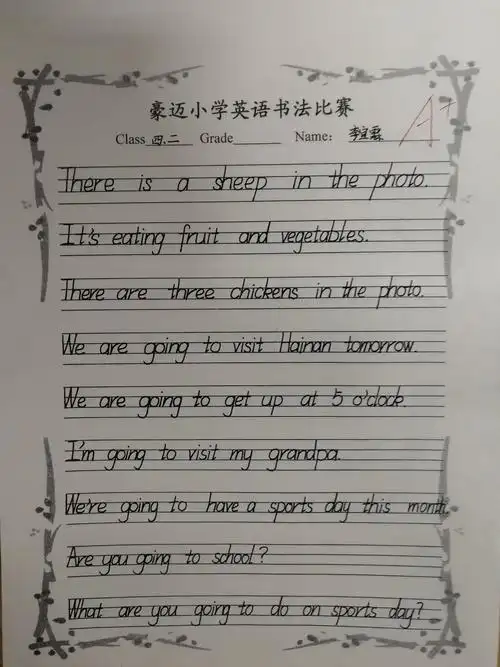 豪迈小学英语书法比赛
Class 四.二 Grade Name: 李宜霖
A+
There is a sheep in the photo.
It's eating fruit and vegetables.
There are three chickens in the photo.
We are going to visit Hainan tomorrow.
We are going to get up at 5 o'clock.
I'm going to visit my grandpa.
We're going to have a sports day this month.
Are you going to school?
What are you going to do on sports day?